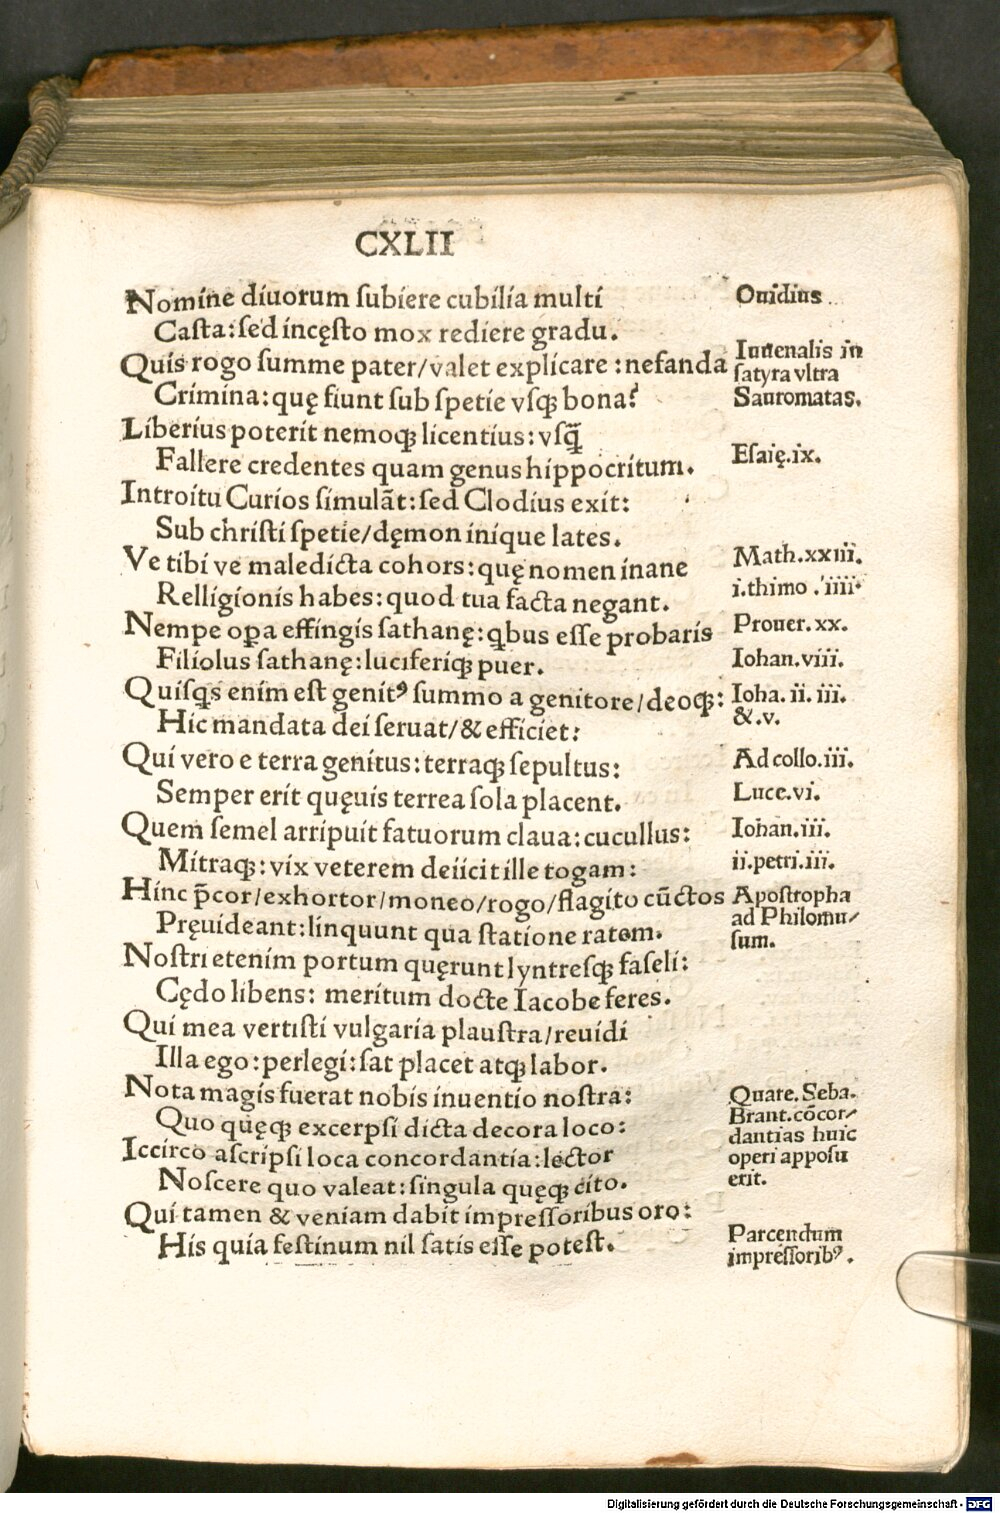 CXLII
Nomine diuorum ſubiere cubilia multi
Caſta: ſed incęſto mox rediere gradu.
Quis rogo ſumme pater/valet explicare: nefanda
Crimina: quę fiunt ſub ſpetie vſqꝫ bona?
Liberius poterit nemoqꝫ licentius: vſq̄ꝫ
Fallere credentes quam genus hippocritum.
Introitu Curios ſimulāt: ſed Clodius exit:
Sub chriſti ſpetie/dęmon inique lates.
Ve tibi ve maledicta cohors: quę nomen inane
Relligionis habes: quod tua facta negant.
Nempe oꝑa effingis ſathanę: qͥbus eſſe probaris
Filiolus ſathanę: luciferiqꝫ puer.
Quiſqͥs enim eſt genitꝰ ſummo a genitore/deoqꝫ:
Hic mandata dei ſeruat/& efficiet:
Qui vero e terra genitus: terraqꝫ ſepultus:
Semper erit quęuis terrea ſola placent.
Quem ſemel arripuit fatuorum claua: cucullus:
Mitraqꝫ: vix veterem deiicit ille togam:
Hinc p̄cor/exhortor/moneo/rogo/flagito cūctos
Pręuideant: linquunt qua ſtatione ratem.
Noſtri etenim portum quęrunt lyntreſqꝫ faſeli:
Cędo libens: meritum docte Iacobe feres.
Qui mea vertiſti vulgaria plauſtra/reuidi
Illa ego: perlegi: ſat placet atqꝫ labor.
Nota magis fuerat nobis inuentio noſtra:
Quo quęqꝫ excerpſi dicta decora loco:
Iccirco aſcripſi loca concordantia: lector
Noſcere quo valeat: ſingula quęqꝫ cito.
Qui tamen & veniam dabit impreſſoribus oro:
His quia feſtinum nil ſatis eſſe poteſt.
Ouidius
Iuuenalis in
ſatyra vltra
Sauromatas.
Eſaię.ix.
Math.xxiii.
i.thimo.iiii.
Prouer.xx.
Iohan.viii.
Ioha.ii.iii.
&.v.
Ad collo.iii.
Luce.vi.
Iohan.iii.
ii.petri.iii.
Apoſtropha
ad Philomu⸗
ſum.
Quare.Seba.
Brant.cōcor⸗
dantias huic
operi appoſu
erit.
Parcendum
impreſſoribꝰ.
Digitalisierung gefördert durch die Deutsche Forschungsgemeinschaft - DFG